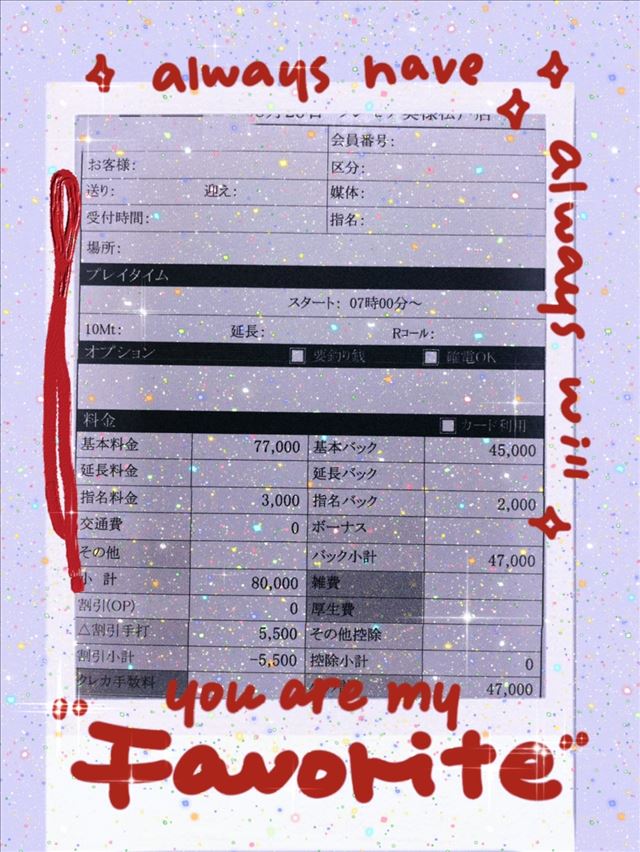 always have
always will
会員番号:
お客様:
区分:
送り: 迎え: 媒体:
受付時間: 指名:
場所:
プレイタイム
スタート: 07時00分～
10Mt: 延長: Rコール:
オプション 要釣り銭 確電OK
料金 カード利用
基本料金 77,000 基本バック 45,000
延長料金 延長バック
指名料金 3,000 指名バック 2,000
交通費 0 ボーナス
その他 バック小計 47,000
小 計 80,000 雑費
割引(OP) 0 厚生費
△割引手打 5,500 その他控除
割引小計 -5,500 控除小計 0
クレカ手数料 47,000
you are my
"Favorite"